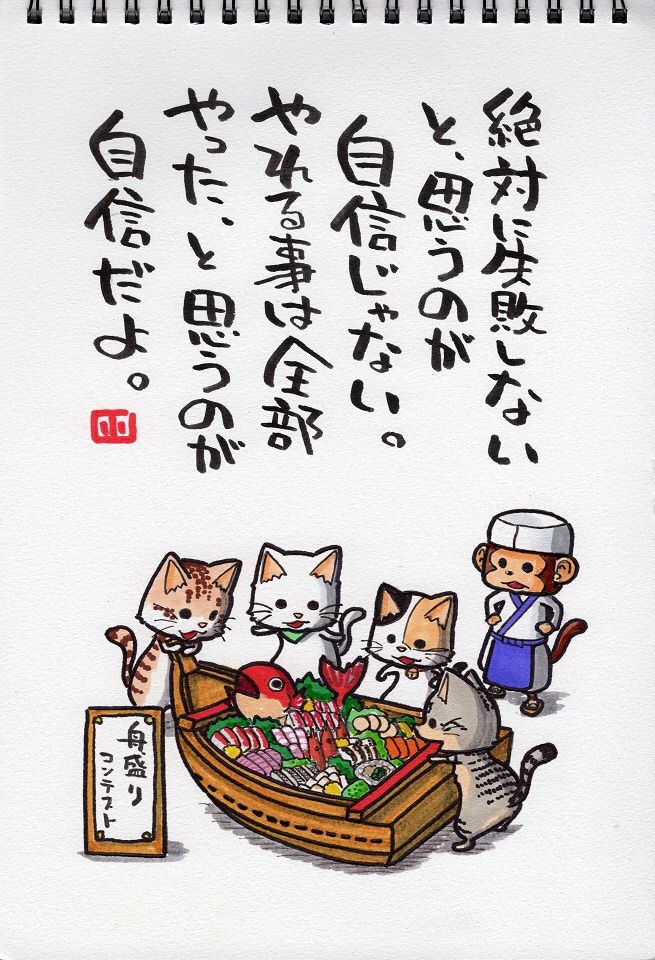 絶対に失敗しない
と、思うのが
自信じゃない。
やれる事は全部
やった、と思うのが
自信だよ。
舟盛り
コンテスト